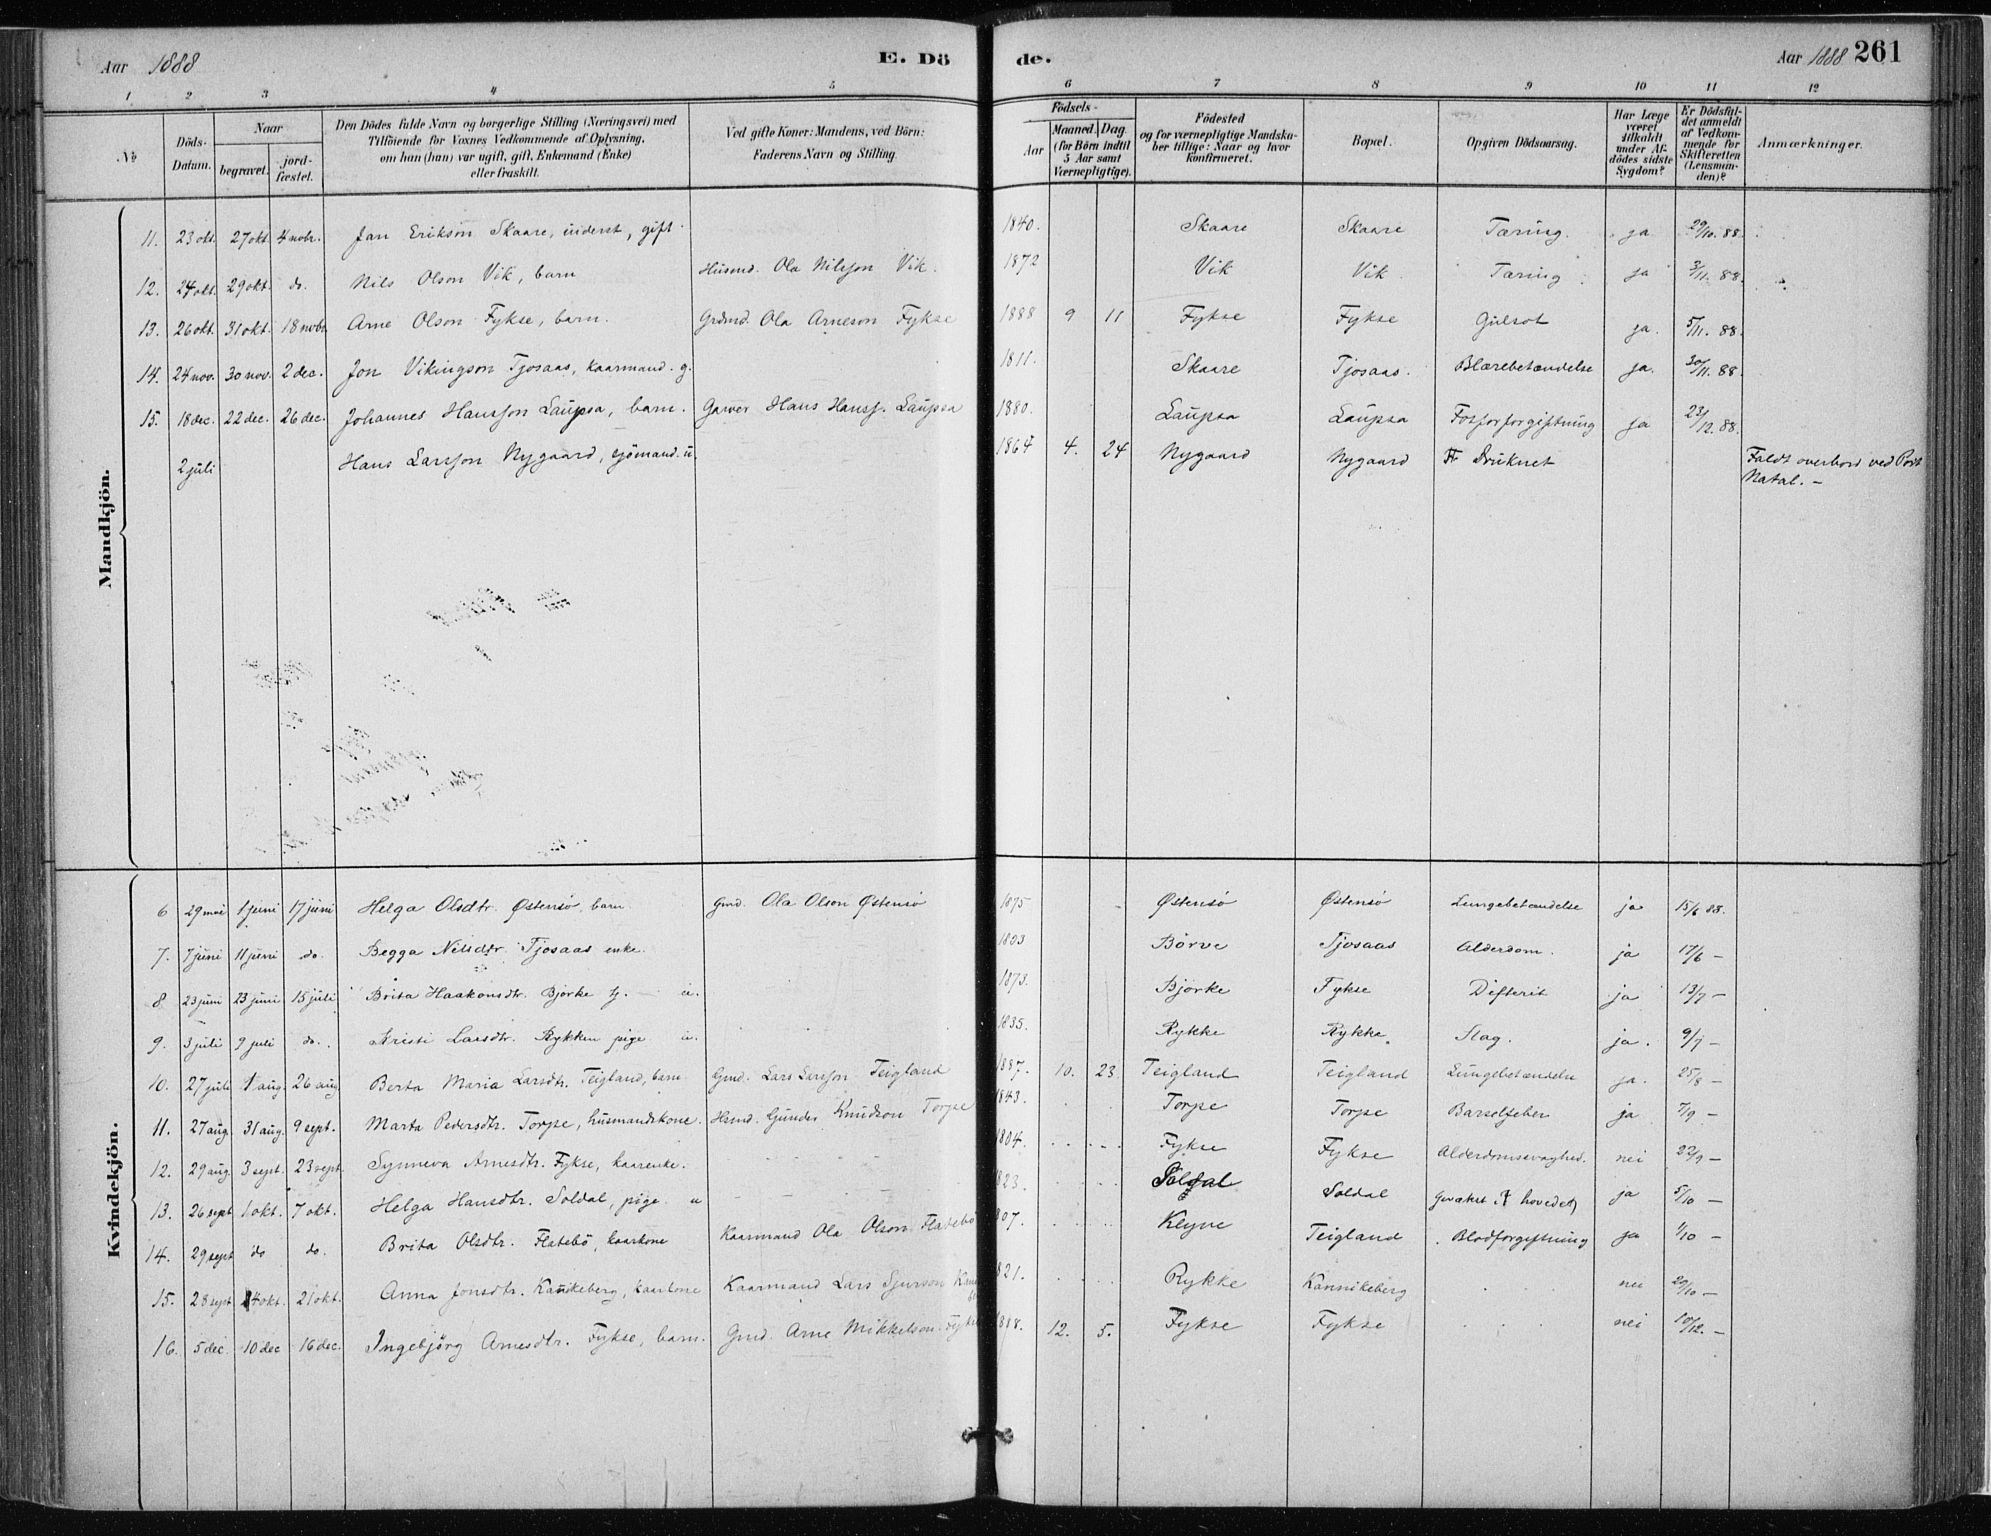 Aar 1888
E. Dö
de.
Aar 1888 261
1 2 3 4 5 6 7 8 9 10 11 12
No
Döds-Datum.
Naar
begravet.
jord-fæstet.
Den Dödes fulde Navn og borgerlige Stilling (Næringsvei) med
Tilföiende for Voxnes Vedkommende af Oplysning,
om han (hun) var ugift, gift, Enkemand (Enke)
eller fraskilt.
Ved gifte Koner: Mandens, ved Börn:
Faderens Navn og Stilling.
Födsels-
Aar
Maaned. Dag
(for Börn indtil
5 Aar samt
Værnepligtige).
Födested
og for værnepligtige Mandska-
ber tillige: Naar og hvor
konfirmeret.
Bopæl.
Opgiven Dödsaarsag.
Har Læge
været
tilkaldt
under Af-
dödes sidste
Sygdom?
Er Dödsfal-
det anmeldt
af Vedkom-
mende for
Skifteretten
(Lensman-
den)?
Anmærkninger.
Mandkjön.
11. 23 okt. 27 okt. 4 nobr. Jan Erikson Skaare, inderst, gift. 1840. Skaare Skaare Tæring. ja 29/10. 88.
12. 24 okt. 29 okt. do. Nils Olson Vik, barn Husmd. Ola Nilsson Vik. 1872 Vik Vik. Tæring ja 3/11. 88.
13. 26 okt. 31 okt. 18 nobr. Arne Olson Fykse, barn. Grdmd. Ola Arneson Fykse 1888 9 11 Fykse Fykse Gulsot ja. 5/11. 88.
14. 24 nov. 30 nov. 2 dec. Jon Vikingson Tjosaas, kaarmand. g. 1811. Skaare Tjosaas. Blærebetændelse ja. 30/11. 88.
15. 18 dec. 22 dec. 26 dec. Johannes Hansson Laupsa, barn. Garver Hans Hanss. Laupsa 1880. Laupsa Laupsa Fosforforgiftning ja 23/12. 88.
2 juli Hans Larsson Nygaard, sjömand. u. 1864 4. 24 Nygaard Nygaard Druknet Faldt overbord ved Port
Natal. –
Kvindekjön.
6 29 mai 1 juni 17 juni Helga Olsdtr. Østensö, barn Gmd. Ola Olson Østensö 1875 Østensö Østensö Lungebetændelse ja 15/6 88.
7. 7 juni 11 juni do. Begga Nilsdtr. Tjosaas enke. 1803 Börve Tjosaas Alderdom. ja 17/6 –
8 23 juni 23 juni 15 juli Brita Haakonsdtr. Bjørke tj. – u. 1873. Bjørke Fykse Difterit ja 13/7 –
9. 3 juli 9 juli do. Kristi Larsdtr. Rykken pige u. 1835. Rykke Rykke Slag. ja. 9/7 –
10. 27 juli 1 aug. 26 aug. Berta Maria Larsdtr. Teigland, barn Gmd. Lars Larsson Teigland 1887. 10. 23 Teigland Teigland Lungebetændelse ja. 25/8 –
11. 27 aug. 31 aug. 9 sept. Marta Pedersdtr. Torpe, husmandskone. Hsmd. Gunder Knudson Torpe 1843. Torpe Torpe Barselfeber ja 7/9 –
12. 29 aug. 3 sept. 23 sept. Synneva Arnesdtr. Fykse, kaarenke. 1804. Fykse Fykse Alderdomssvaghed. nei 22/9 –
13. 26 sept 1 okt. 7 okt. Helga Hansdtr. Soldal, pige u 823. Soldal Soldal Gevækst (i hovedet) ja 5/10 –
14. 29 sept do do. Brita Olsdtr. Flatebö, kaarkone Kaarmand Ola Olson Flatebö 807. Klyve Teigland Blodforgiftning ja 1/10 –
15. 28 sept 4 okt. 21 okt. Anna Jonsdtr. Kannikeberg, kaarkone Kaarmand Lars Sjurson 821. Rykke Kannikeberg nei 20/10 –
16. 5 dec. 10 dec 16 dec. Ingebjörg Arnesdtr. Fykse, barn. Gmd. Arne Mikkelson Fykse 1818. 12. 5. Fykse Fykse nei 10/12. –